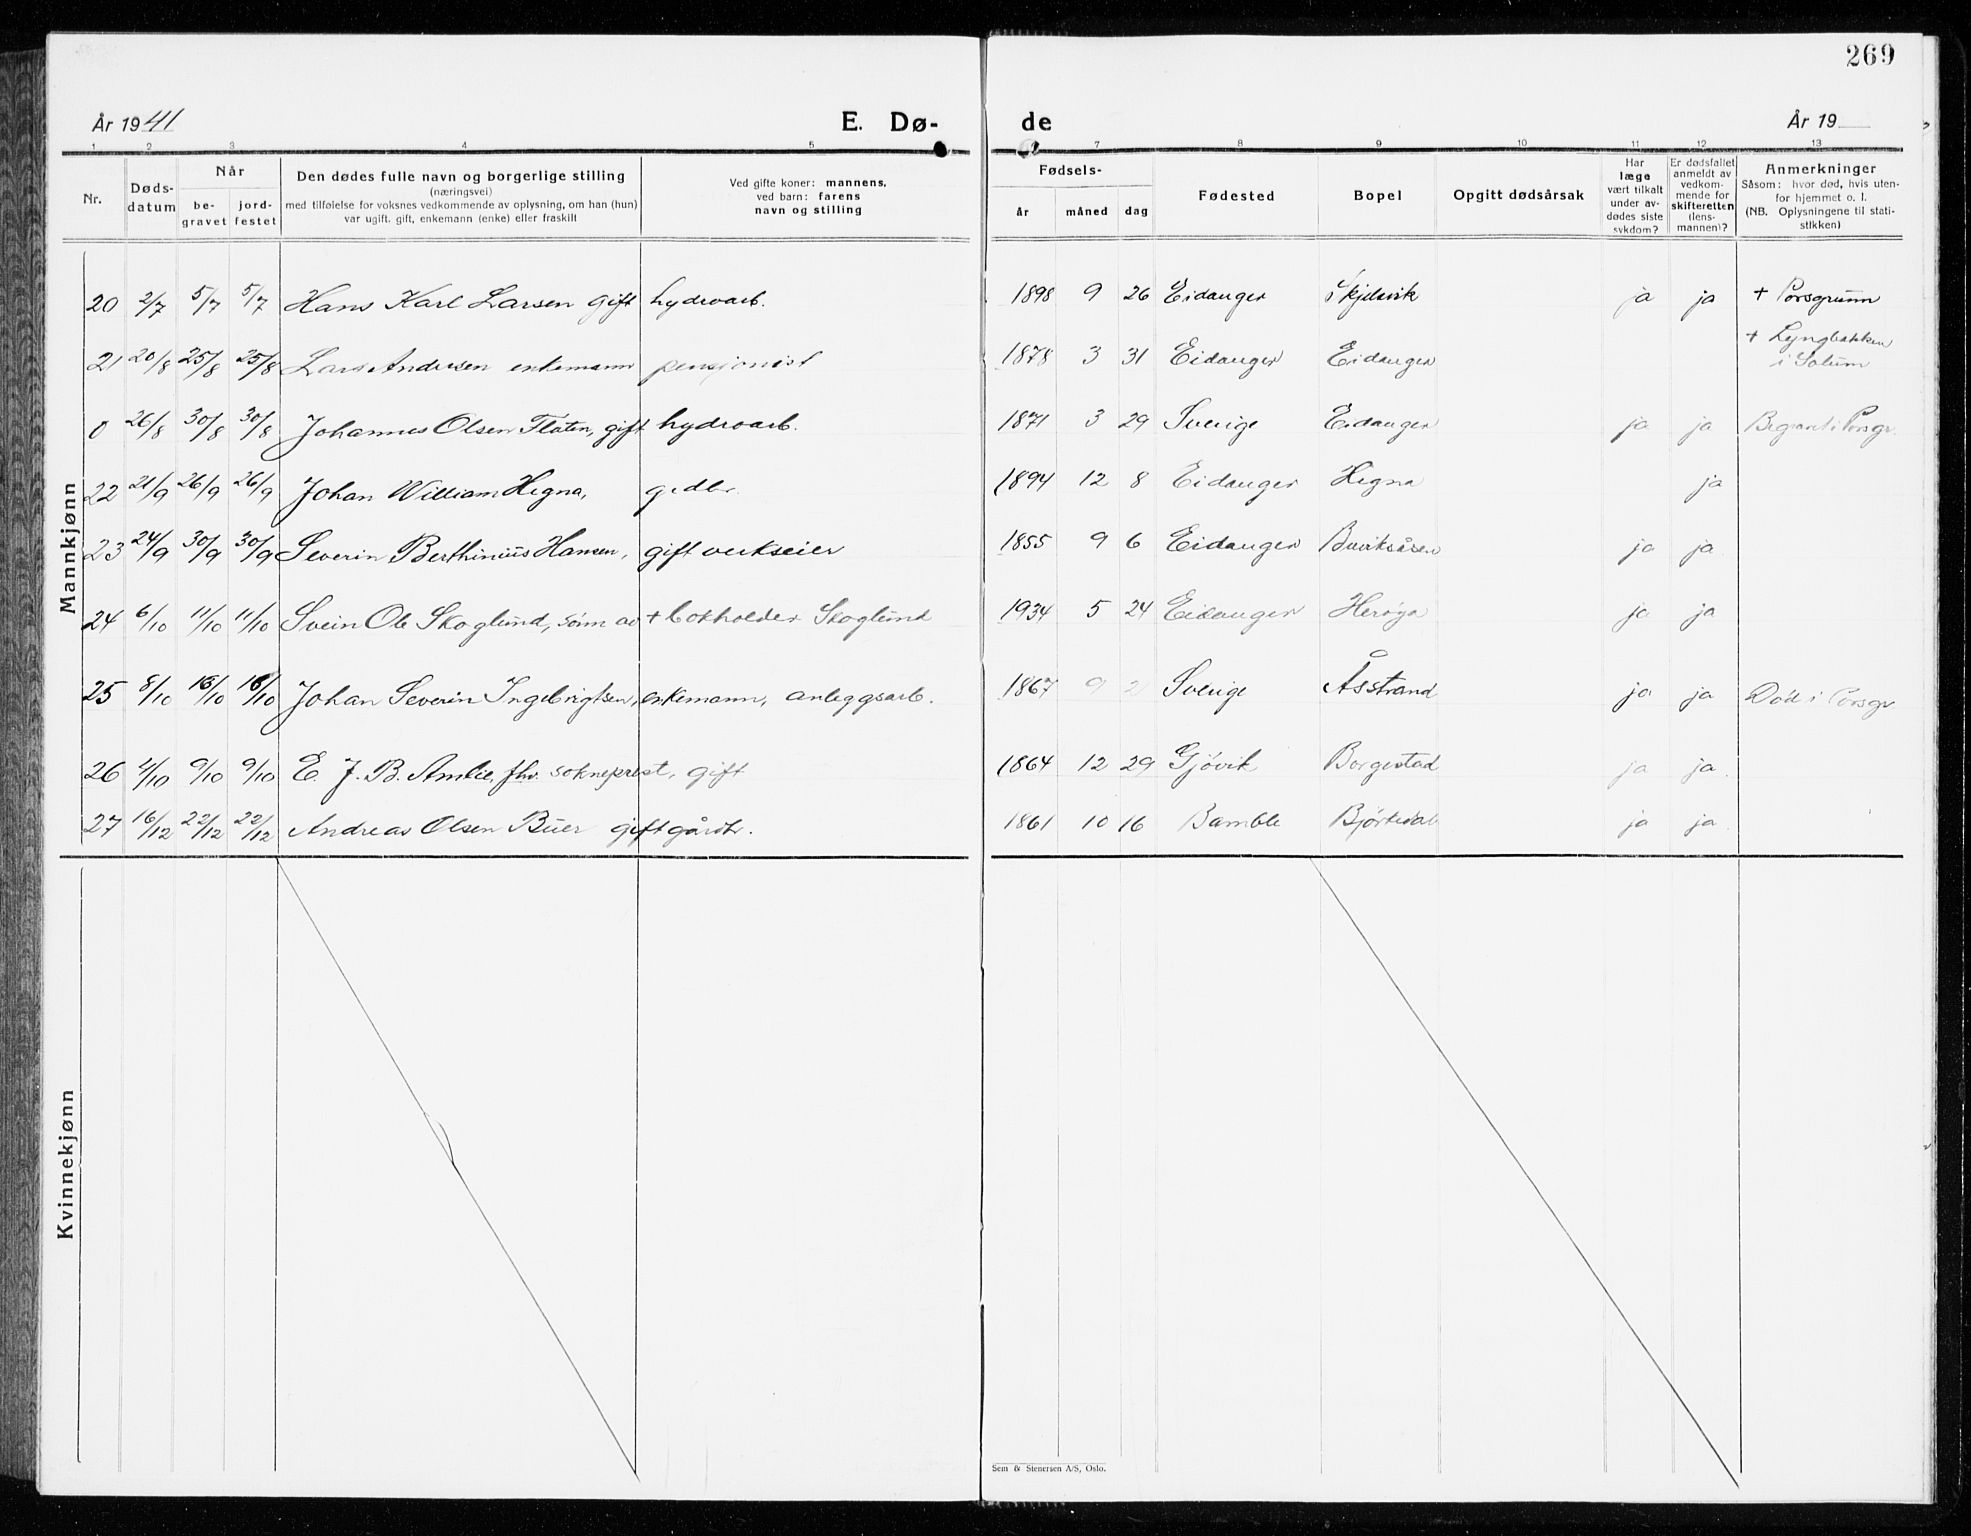 269
År 1941 E. Dø- de År 19
1 2 3 4 5 7 8 9 10 11 12 13
Nr. Døds-datum Når be-gravet jord-festet Den dødes fulle navn og borgerlige stilling (næringsvei) med tilføielse for voksnes vedkommende av oplysning, om han (hun) var ugift, gift, enkemann (enke) eller fraskilt Ved gifte koner: mannens, ved barn: farens navn og stilling Fødsels- år måned dag Fødested Bopel Opgitt dødsårsak Har læge vært tilkalt under av-dødes siste sykdom? Er dødsfallet anmeldt av vedkom-mende for skifteretten (lens-mannen)? Anmerkninger Såsom: hvor død, hvis uten-for hjemmet o. l. (NB. Oplysningene til stati-stikken)
Mannkjønn
20 2/7 5/7 5/7 Hans Karl Larsen gift hydroarb. 1898 9 26 Eidanger Skjelsvik ja ja + Porsgrunn
21 20/8 25/8 25/8 Lars Andersen enkemann pensjonist 1878 3 31 Eidanger Eidanger + Lyngbakken i Solum
0 26/8 30/8 30/8 Johannes Olsen Flaten, gift hydroarb. 1871 3 29 Sverige Eidanger ja ja Begravet i Porsgr.
22 21/9 26/9 26/9 Johan William Hegna, grdbr. 1894 12 8 Eidanger Hegna ja
23 24/9 30/9 30/9 Severin Berthinius Hansen, gift verkseier 1855 9 6 Eidanger Buviksåsen ja ja
24 6/10 11/10 11/10 Svein Ole Skoglund, sönn av + bokholder Skoglund 1934 5 24 Eidanger Heröya ja ja
25 8/10 16/10 16/10 Johan Severin Ingebrigtsen, enkemann, anleggsarb. 1867 9 2 Sverige Åsstrand ja ja Död i Porsgr.
26 4/10 9/10 9/10 E. J. B. Amlie, fhv. sokneprest, gift 1864 12 29 Gjövik Borgestad ja ja
27 16/12 22/12 22/12 Andreas Olsen Buer gift gårdbr. 1861 10 16 Bamble Bjørkedal ja ja
Kvinnekjønn
Sem & Stenersen A/S, Oslo.